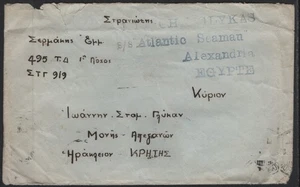 Στρατιώτης
Σερμάκης Εμμ
495 Τ.Δ 1ος Λόχος
ΣΤΓ 919
S/S Atlantic Seaman
Alexandria
EGYPTE
Κύριον
Ἰωάννην. Σταμ. Γλύκαν
Μονῆς - Απεζανῶν
Ηράκλειον ΚΡΗΤΗΣ